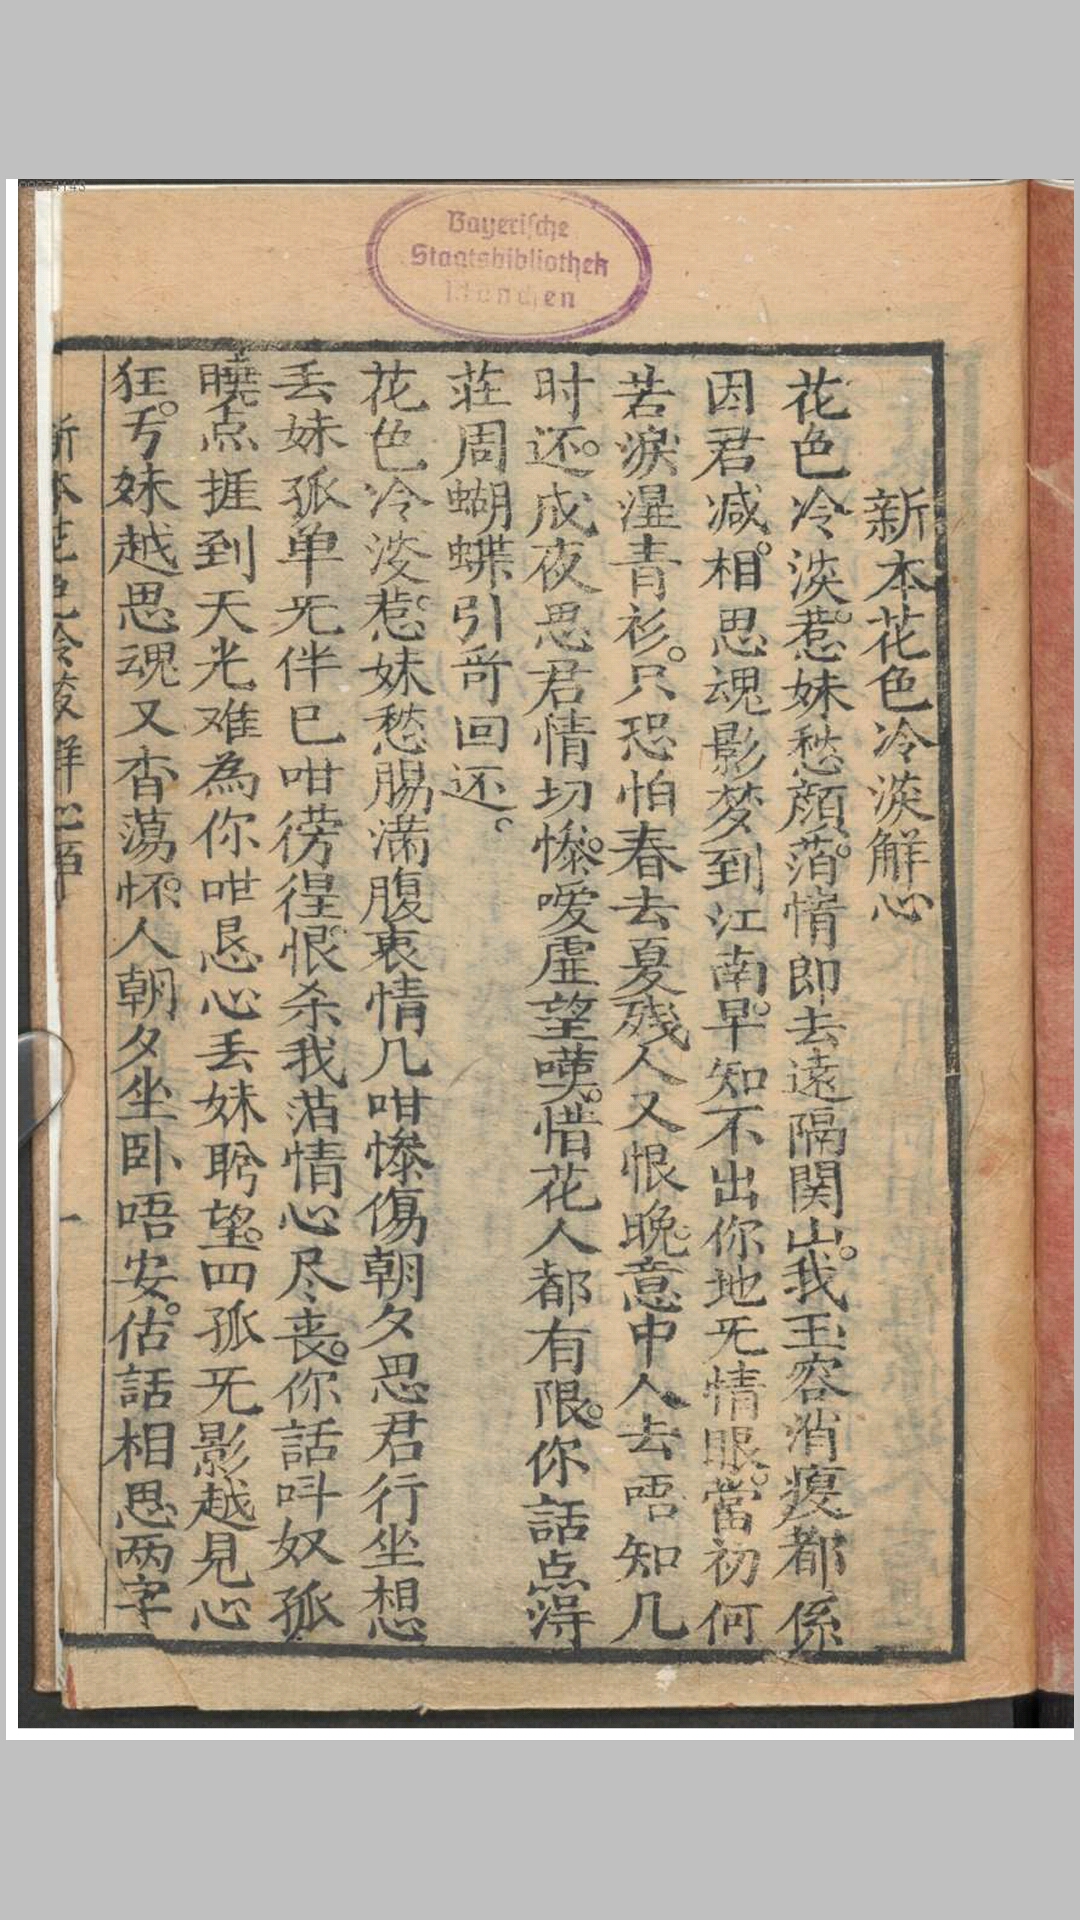 Bayerische
Staatsbibliothek
München
新本花色冷淡解心
花色冷淡。惹妹愁顔。萡情即去遠隔関山。我玉容消瘦都係
因君减。相思魂影梦到江南。早知不出你地旡情眼。當初何
苦淚濕青衫。只恐怕春去夏残人又恨晚。意中人去唔知几
时还。成夜思君情切惨。噯虚望嘆。惜花人都有限。你話点得
荘周蝴蝶引哥回还。
花色冷淡。惹妹愁腸满腹衷情几咁惨傷朝夕思君行坐想
丢妹孤单旡伴已咁徬徨。恨杀我萡情心尽丧。你話呌奴孤
曉点捱到天光难為你咁忍心丢妹聆望。四孤旡影越見心
狂。亏妹越思魂又杳蕩。怀人朝夕坐卧唔安。估話相思两字
新本花色冷淡解心
一